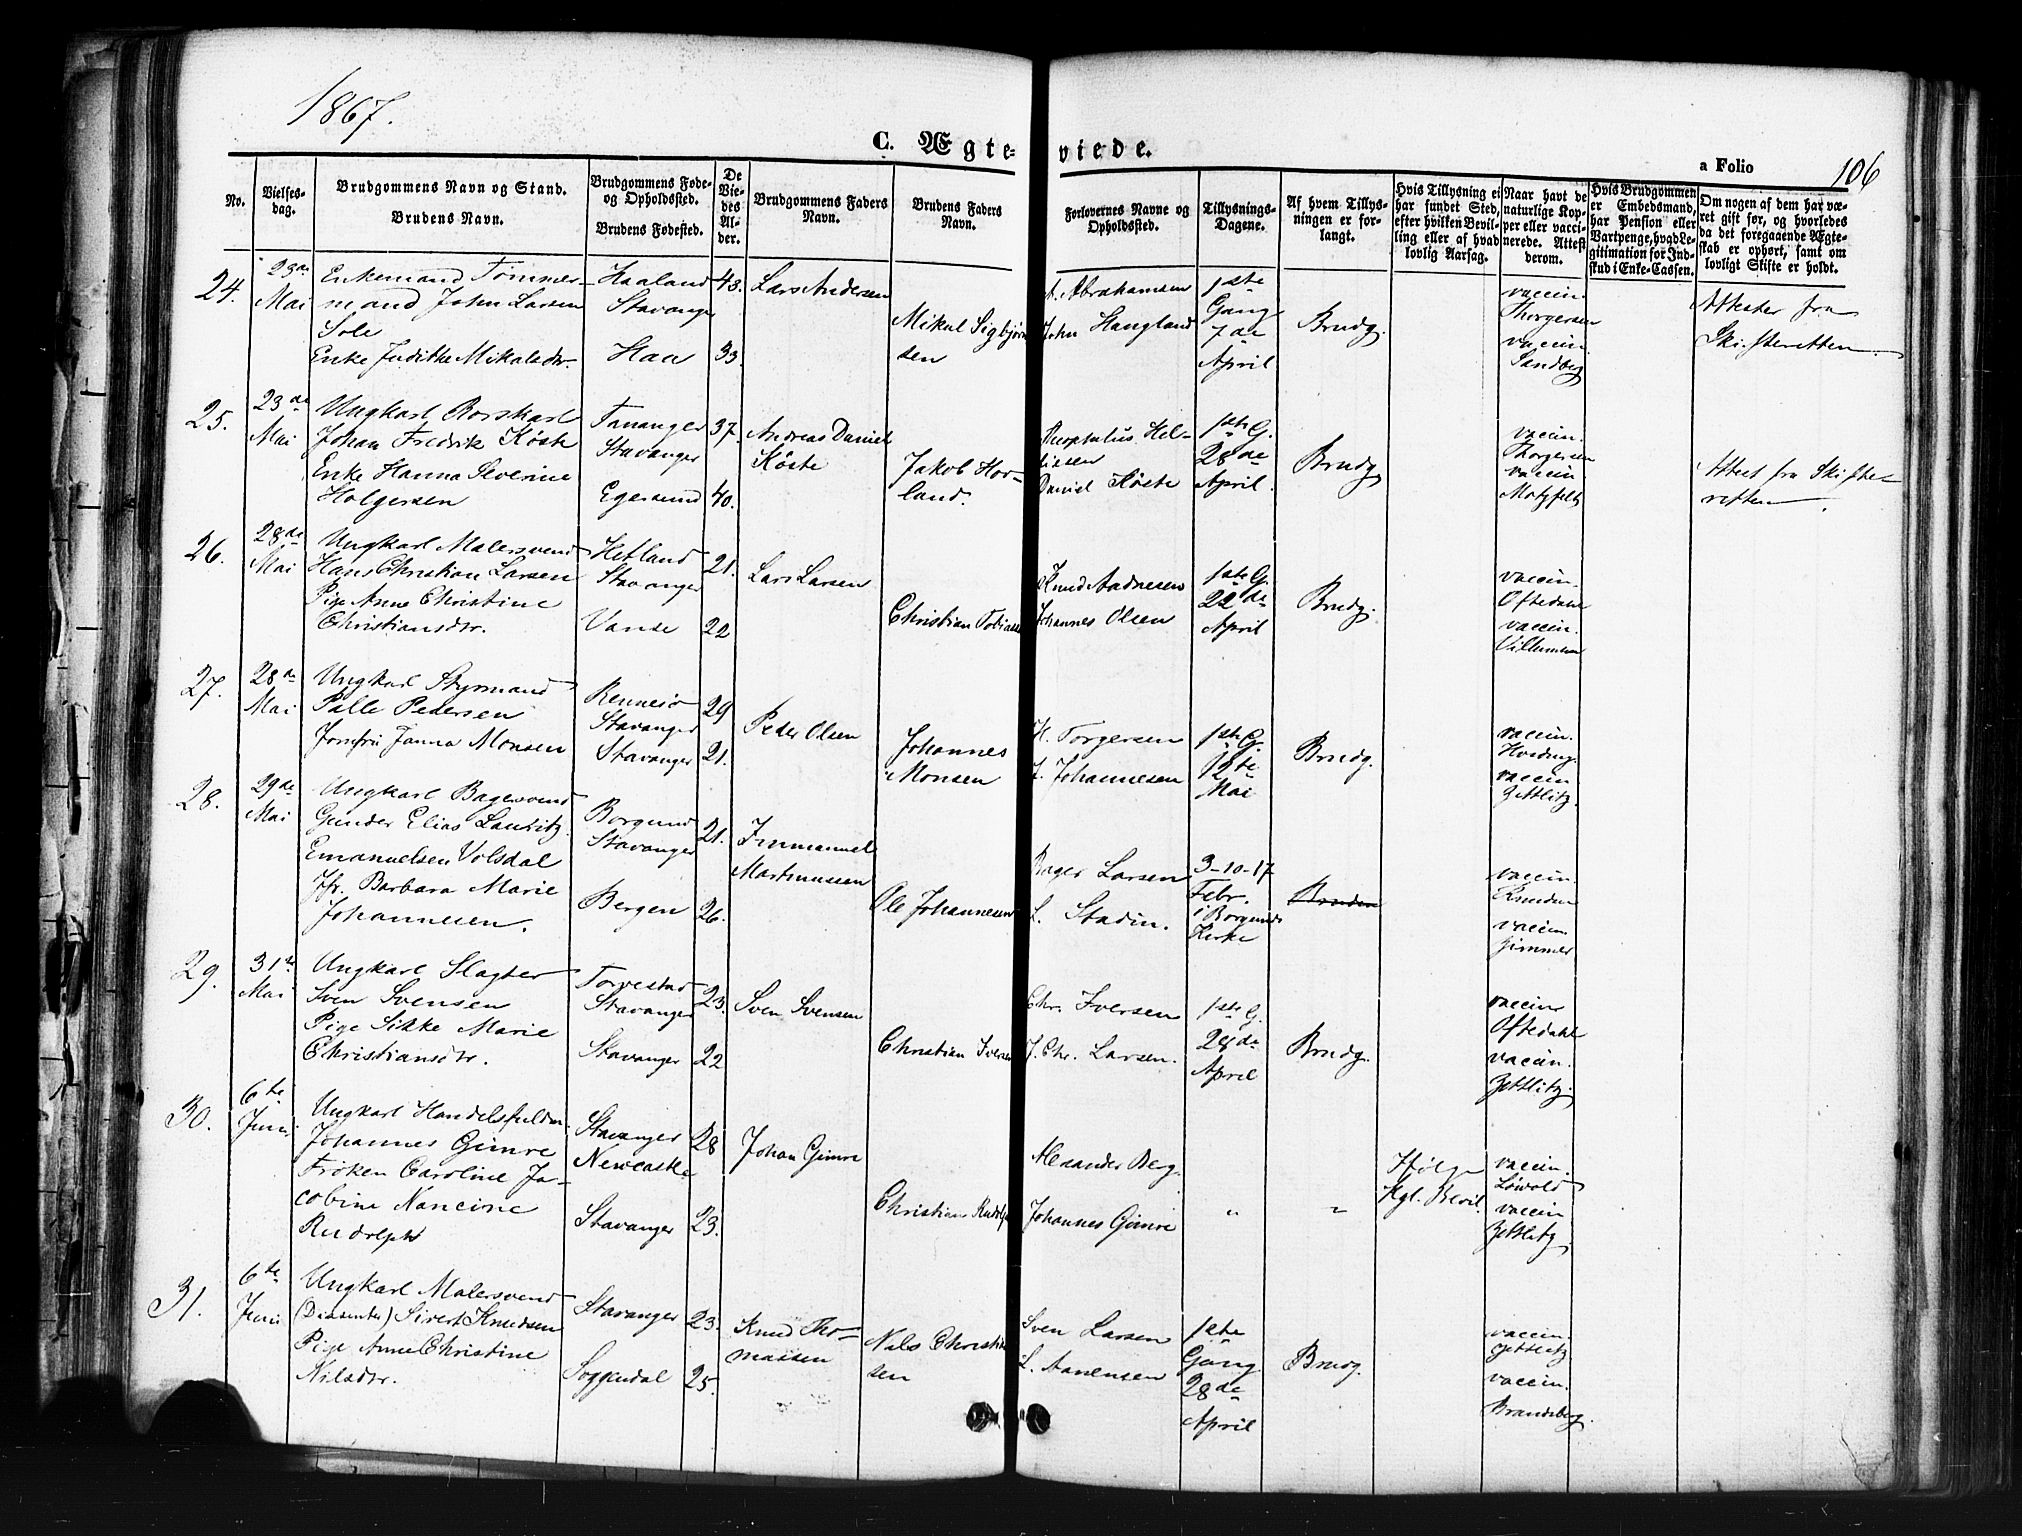 1867.
C. Ægteviede.
a Folio 106
No.
Vielses-
dag.
Brudgommens Navn og Stand.
Brudens Navn.
Brudgommens Føde-
og Opholdssted.
Brudens Fødested.
De
Vie-
des
Al-
der.
Brudgommens Faders
Navn.
Brudens Faders
Navn.
Forlovernes Navne og
Opholdssted.
Tillysnings-
Dagene.
Af hvem Tillys-
ningen er for-
langt.
Hvis Tillysning ei
har fundet Sted,
efter hvilken Bevil-
ling eller af hvad
lovlig Aarsag.
Naar havt de
naturlige Kop-
per eller vacci-
nerede. Attest
derom.
Hvis Brudgommen
er Embedsmand,
har Pension eller
Vartpenge, hvad Le-
gitimation for Ind-
skud i Enke-Cassen.
Om nogen af dem har væ-
ret gift før, og hvorledes
da det foregaaende Ægte-
skab er ophørt, samt om
lovligt Skifte er holdt.
24.
23de
Mai
Enkemand Tømmer-
mand John Larsen
Sole
Enke Judithe Mikalsdtr.
Haaland
Stavanger
Haa
43.
33.
Lars Andersen
Mikal Sigbjørn
sen
Abrahamsen
John Haugland
1ste
Gang
7de
April
Brudg.
vaccin.
Thorgersen
vaccin.
Sandberg
Attester fra
Skifteretten.
25.
23de
Mai
Ungkarl Borskarl
Johan Fredrik Køste
Enke Hanna Severine
Holgersen
Tananger
Stavanger
Egersund
37.
40.
Andreas Daniel
Køste
Jakob Hor-
land.
Daniel Køste
1ste G.
28de
April.
Brudg.
vaccin.
Thorgersen
vaccin.
Motzfeldt
Attest fra Skifte-
retten.
26.
28de
Mai
Ungkarl Malersvend
Hans Christian Larsen
Pige Anne Christine
Christiansdtr.
Hetland
Stavanger
Vanse
21.
22
Lars Larsen
Christian Tobiasse
Knud Aadnesen
Johannes Olsen
1ste G.
22de
April
Brudg.
vaccin.
Oftedahl
vaccin.
Villumsen
27.
28de
Mai
Ungkarl Styrmand
Palle Pedersen
Jomfru Janna Monsen
Rennesø
Stavanger
Stavanger
29
21.
Peder Olsen
Johannes
Monsen
H. Torgersen
J. Johannesen
1ste G.
12te
Mai
Brudg.
vaccin.
vaccin
Zetlitz.
28.
29de
Mai
Ungkarl Bagersvend
Gunder Elias Lauritz
Emanuelsen Volsdal
Jfr. Barbara Marie
Johannesen.
Borgund
Stavanger
Bergen
21.
26.
Immanuel
Martinussen
Ole Johannesen
Bager Larsen
L. Stadin.
3-10-17
Febr.
i Borgunds
Kirke
Bruden
vaccin.
Knudsen
vaccin.
Gimmer
29.
31te
Mai
Ungkarl Slagter
Sven Svensen
Pige Sikke Marie
Christiansdtr.
Torvestad
Stavanger
Stavanger
23.
22
Sven Svensen
Christian Iversen
Chr. Iversen
J. Chr. Larsen.
1ste G.
28de
April
Brudg.
vaccin
Oftedahl
vaccin.
Zettlitz.
30.
6te
Juni
Ungkarl Handelsfuldm.
Johannes Gimre
Frøken Caroline Ja-
cobine Nancine
Rudolph
Stavanger
Newcastle
Stavanger
28
23.
Johan Gimre
Christian Rudolph
Alexander Berg.
Johannes Gimre
"
"
Ifølge
Kgl. Bevil.
vaccin.
Løwold
vaccin
Zettlitz.
31.
6te
Juni
Ungkarl Malersvend
(Dissenter) Sivert Knudsen
Pige Anne Christine
Nilsdtr.
Stavanger
Soggendal
23.
25.
Knud Tho-
massen
Nils Christia
sen
Sven Larsen
L. Aanensen
1ste
Gang
28de
April
Brudg.
vaccin.
Zettlitz
vaccin.
Brandsberg.